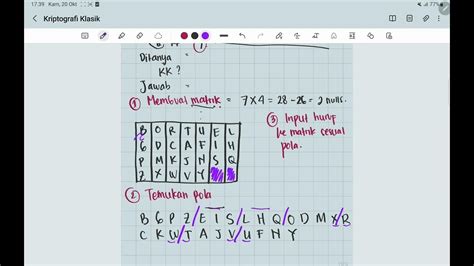 17.39 Kam, 20 Okt
77%
Kriptografi Klasik
Ditanya =
KK ?
Jawab =
① Membuat matrik = 7 x 4 = 28 - 26 = 2 nulls.
③ Input huruf
ke matrik sesuai
pola.
B O R T U E L
G D C A F I H
P M K J N S Q
Z X W V Y
② Temukan pola
B G P Z / E I S / L H Q / O D M X / R
C K W / T A J V / U F N Y